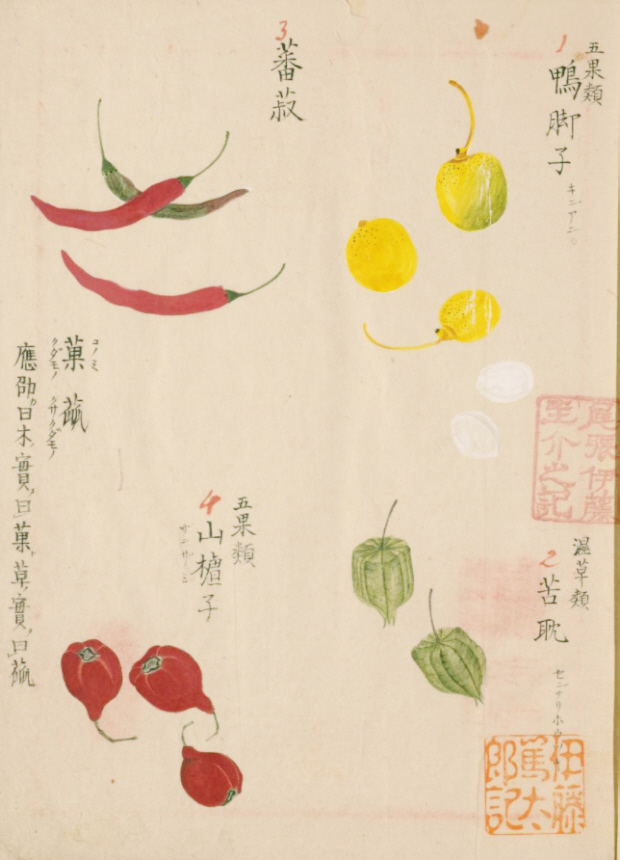 五果類
1
鴨脚子
キンアン
尾張伊藤
圭介之記
濕草類
2
苦耽
センナリホウ
伊藤
篤太
郎記
3
蕃菽
五果類
4
山樝子
サンザシ
コノミ クサクダモノ
クダモノ
菓蓏
應劭曰木實曰菓草實曰蓏